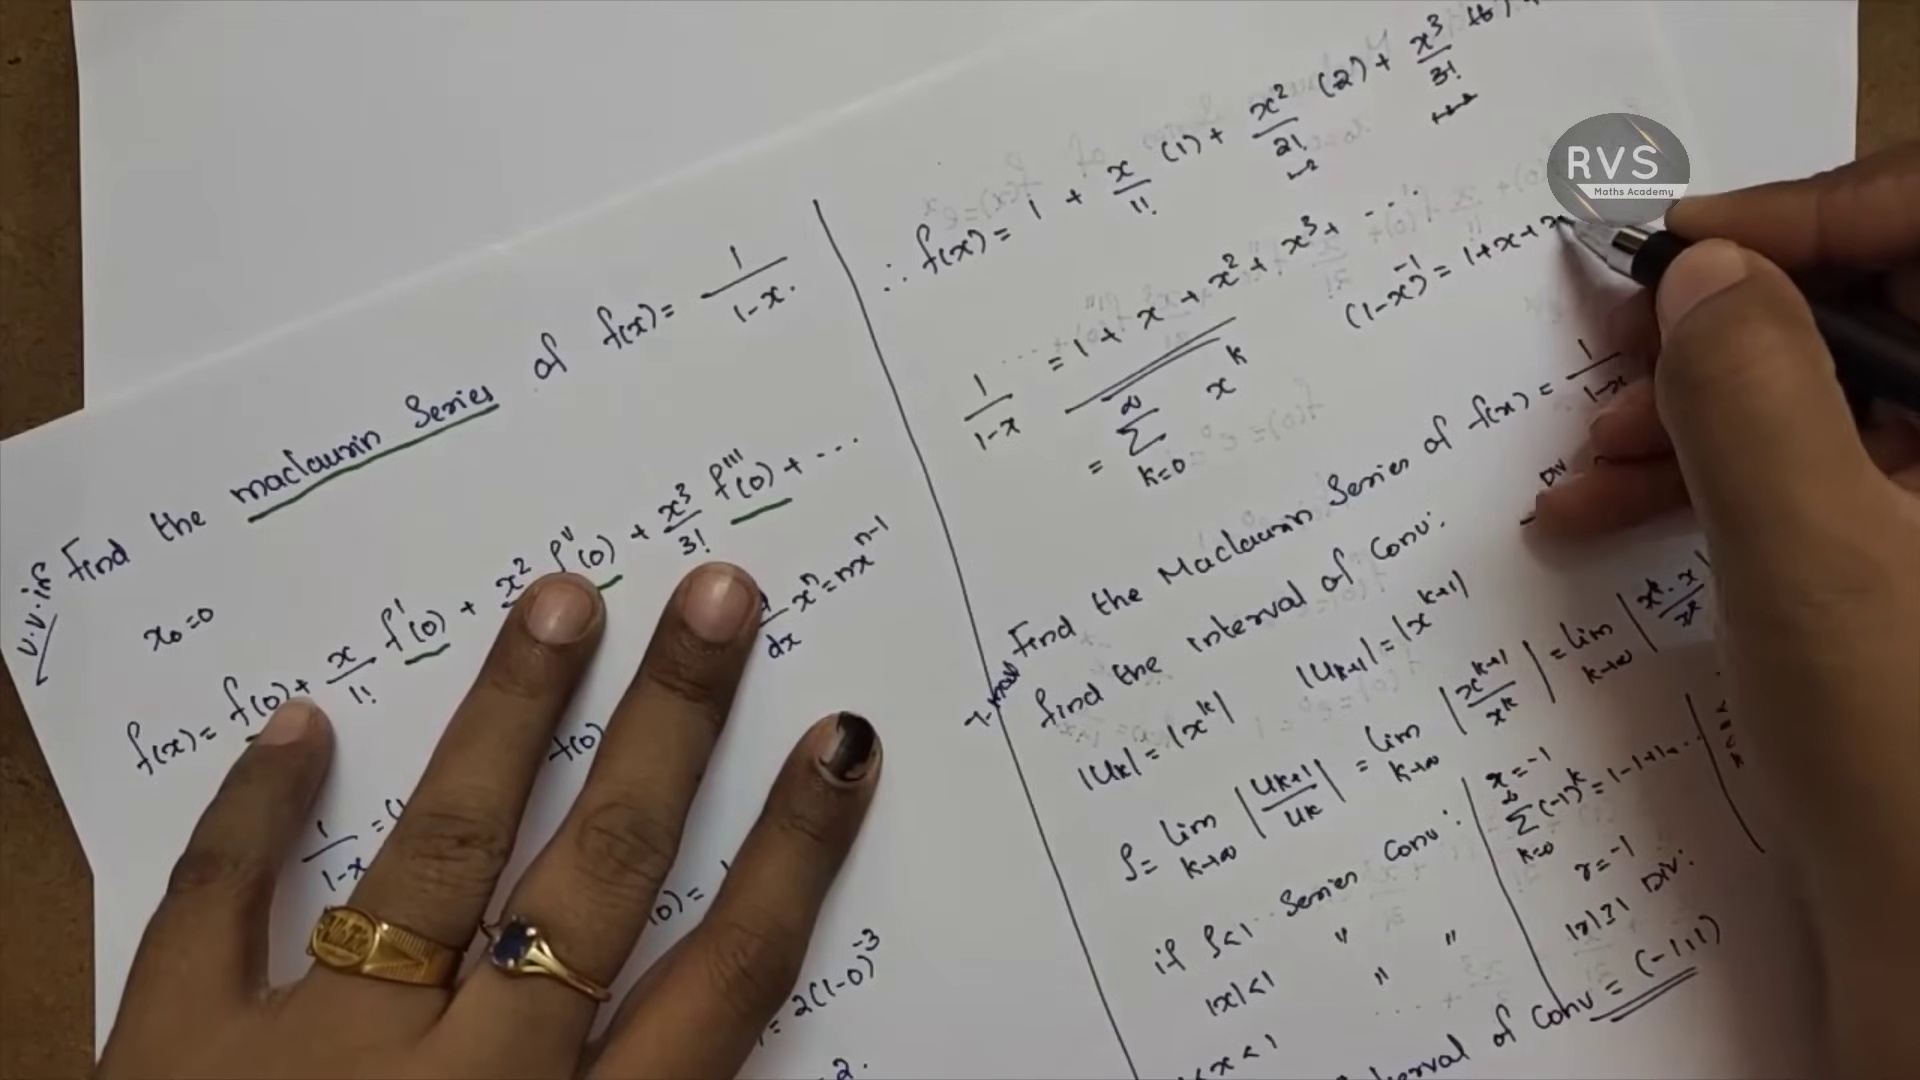 v.v.if Find the maclaurin Series of f(x) = 1/(1-x).
x₀=0
f(x) = f(0) + x/1! f'(0) + x²/ f''(0) + x³/3! f'''(0) + ...
dx xⁿ = nxⁿ⁻¹
f(0)
1/(1-x) =
(0) =
= 2(1-0)⁻³
= 2.
∴ f(x) = 1 + x/1! (1) + x²/2! (2) + x³/3!
1/(1-x) = 1 + x + x² + x³ + ...
(1-x)⁻¹ = 1+x+
= ∑ₖ₌₀^∞ xᵏ
Find the Maclaurin Series of f(x) = 1/(1-x)
Div
find the interval of Conv:
|uₖ| = |xᵏ| |uₖ₊₁| = |xᵏ⁺¹|
ρ = lim k→∞ |uₖ₊₁/uₖ| = lim k→∞ |xᵏ⁺¹/xᵏ| = lim k→∞ |xᵏ·x/xᵏ|
if ρ<1 Series Conv:
|x|<1 " "
<x<1 "
x=-1
∑ₖ₌₀^∞ (-1)ᵏ = 1-1+1+...
r=-1
|r|≥1 Div:
interval of Conv = (-1,1)
RVS
Maths Academy